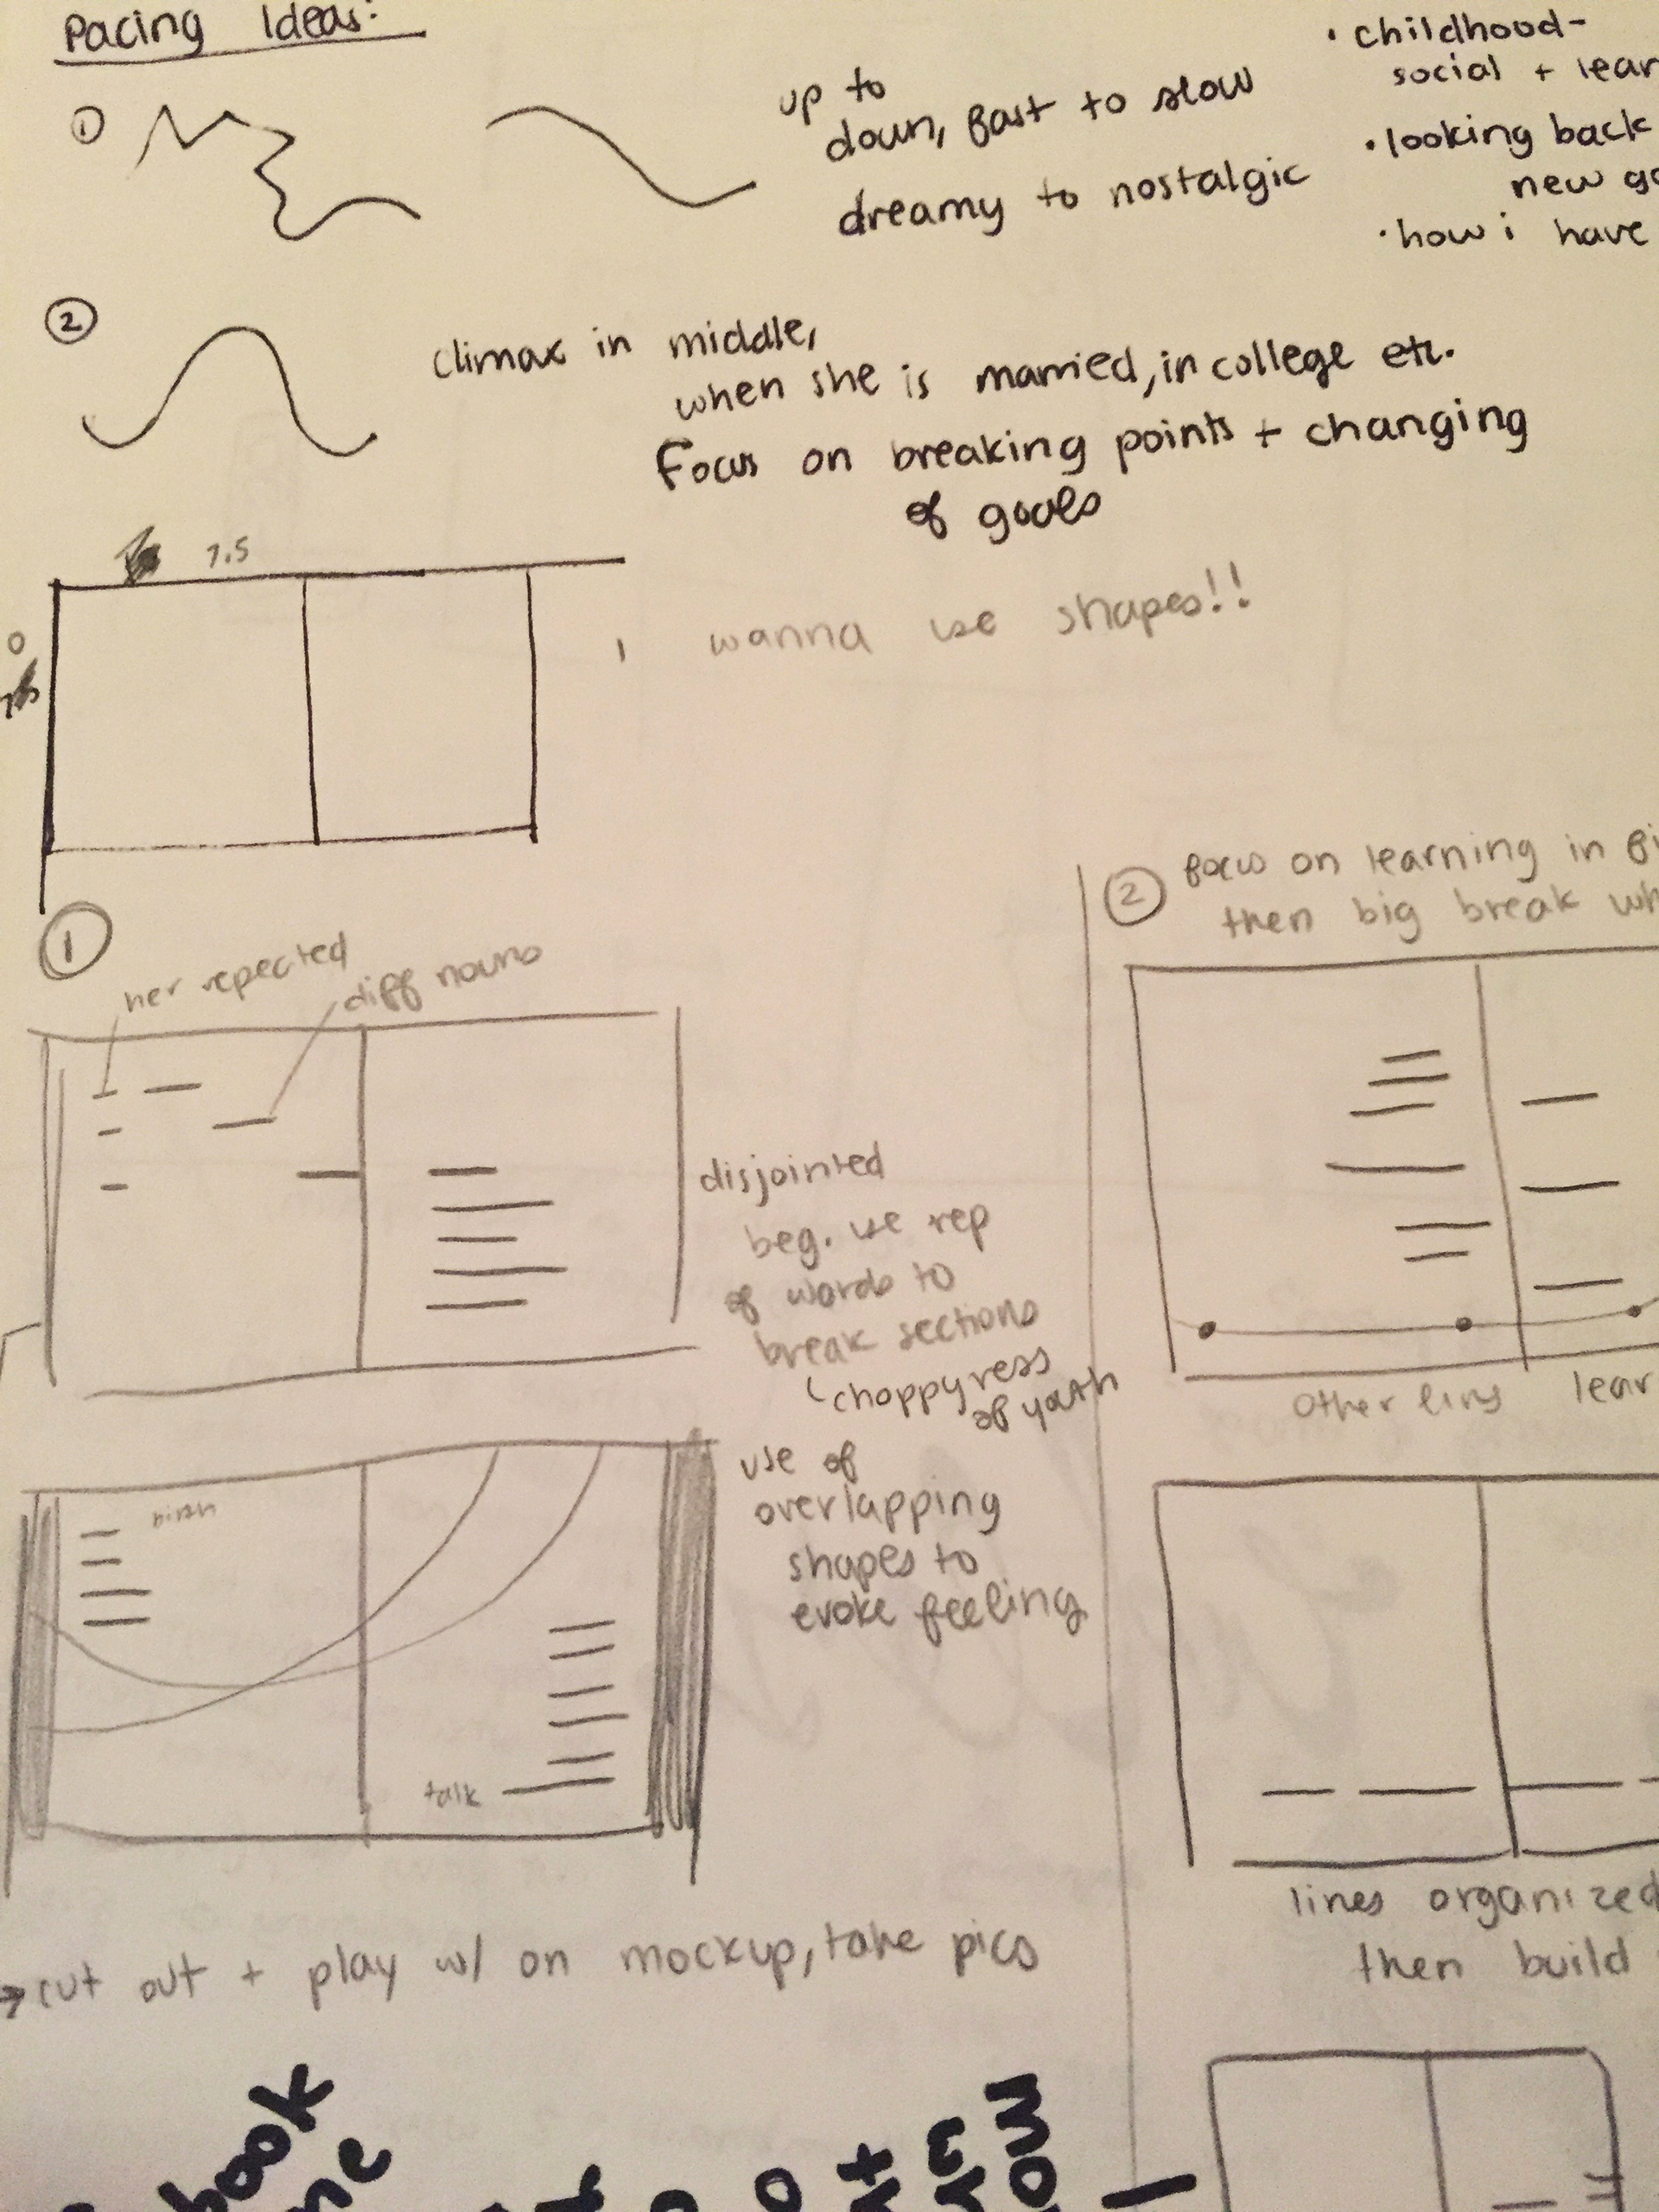 Pacing Ideas:
1
up to
down, fast to slow
dreamy to nostalgic
· childhood-
social + lear
· looking back
new go
· how i have
2
climax in middle,
when she is married, in college etc.
Focus on breaking points + changing
of goals
7.5
i wanna use shapes!!
1
her repeated
diff nouns
disjointed
beg. use rep
of words to
break sections
choppyness
of youth
birth
talk
use of
overlapping
shapes to
evoke feeling
→ cut out + play w/ on mockup, take pics
2 focus on learning in
then big break wh
other lins lear
lines organized
then build
book